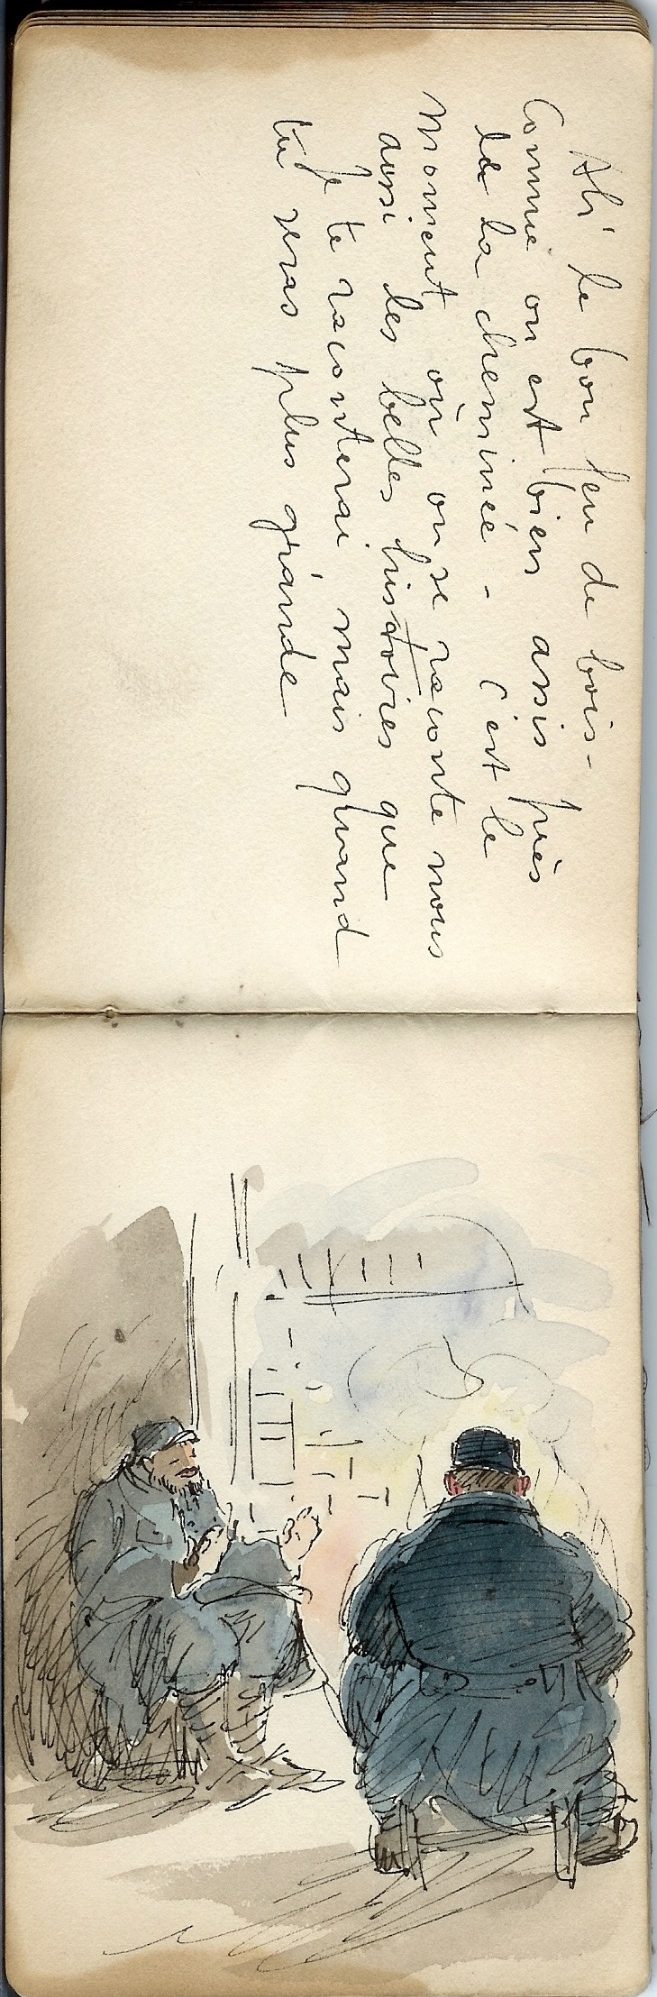 Ah! le bon feu de bois -
Comme on est bien assis près
de la cheminée - C'est le
moment où on se raconte nous
aussi les belles histoires que
je te raconterai mais quand
tu seras plus grande